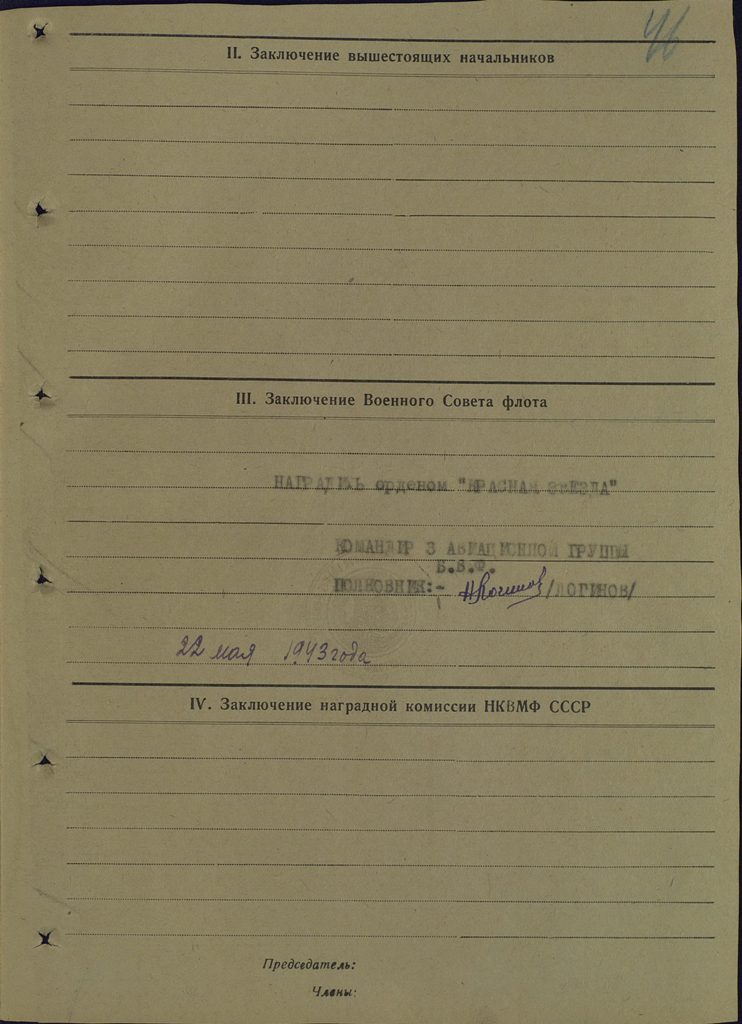 46
II. Заключение вышестоящих начальников
III. Заключение Военного Совета флота
НАГРАДИТЬ орденом "КРАСНАЯ ЗВЕЗДА"
КОМАНДИР 3 АВИАЦИОННОЙ ГРУППЫ
В.В.Ф.
ПОЛКОВНИК:- НЛогинов /ЛОГИНОВ/
22 мая 1943 года
IV. Заключение наградной комиссии НКВМФ СССР
Председатель:
Члены: